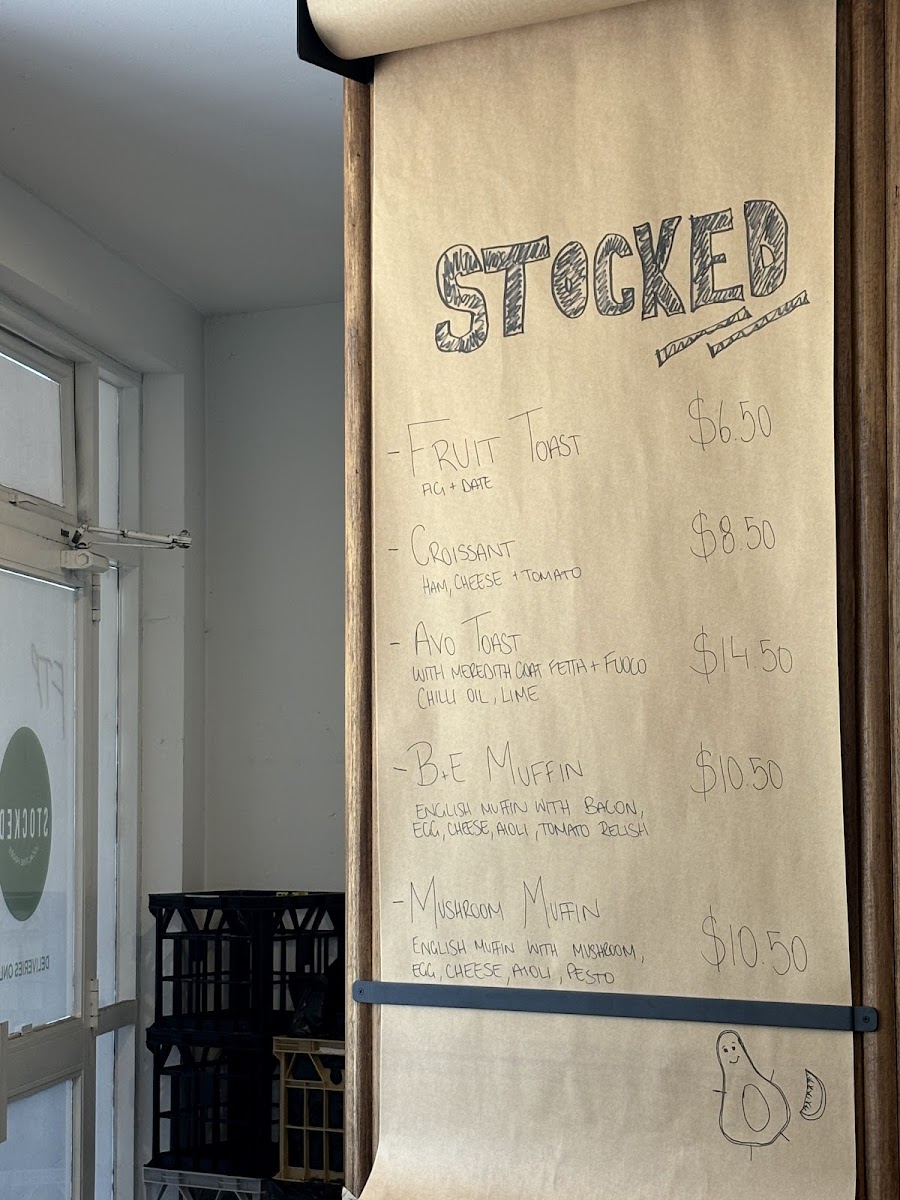 STOCKED
- FRUIT TOAST $6.50
FIG + DATE
- CROISSANT $8.50
HAM, CHEESE + TOMATO
- AVO TOAST $14.50
WITH MEREDITH GOAT FETTA + FUOCO
CHILLI OIL, LIME
- B+E MUFFIN $10.50
ENGLISH MUFFIN WITH BACON,
EGG, CHEESE, AIOLI, TOMATO RELISH
- MUSHROOM MUFFIN $10.50
ENGLISH MUFFIN WITH MUSHROOM,
EGG, CHEESE, AIOLI, PESTO
STOCKED
DELIVERIES ONL